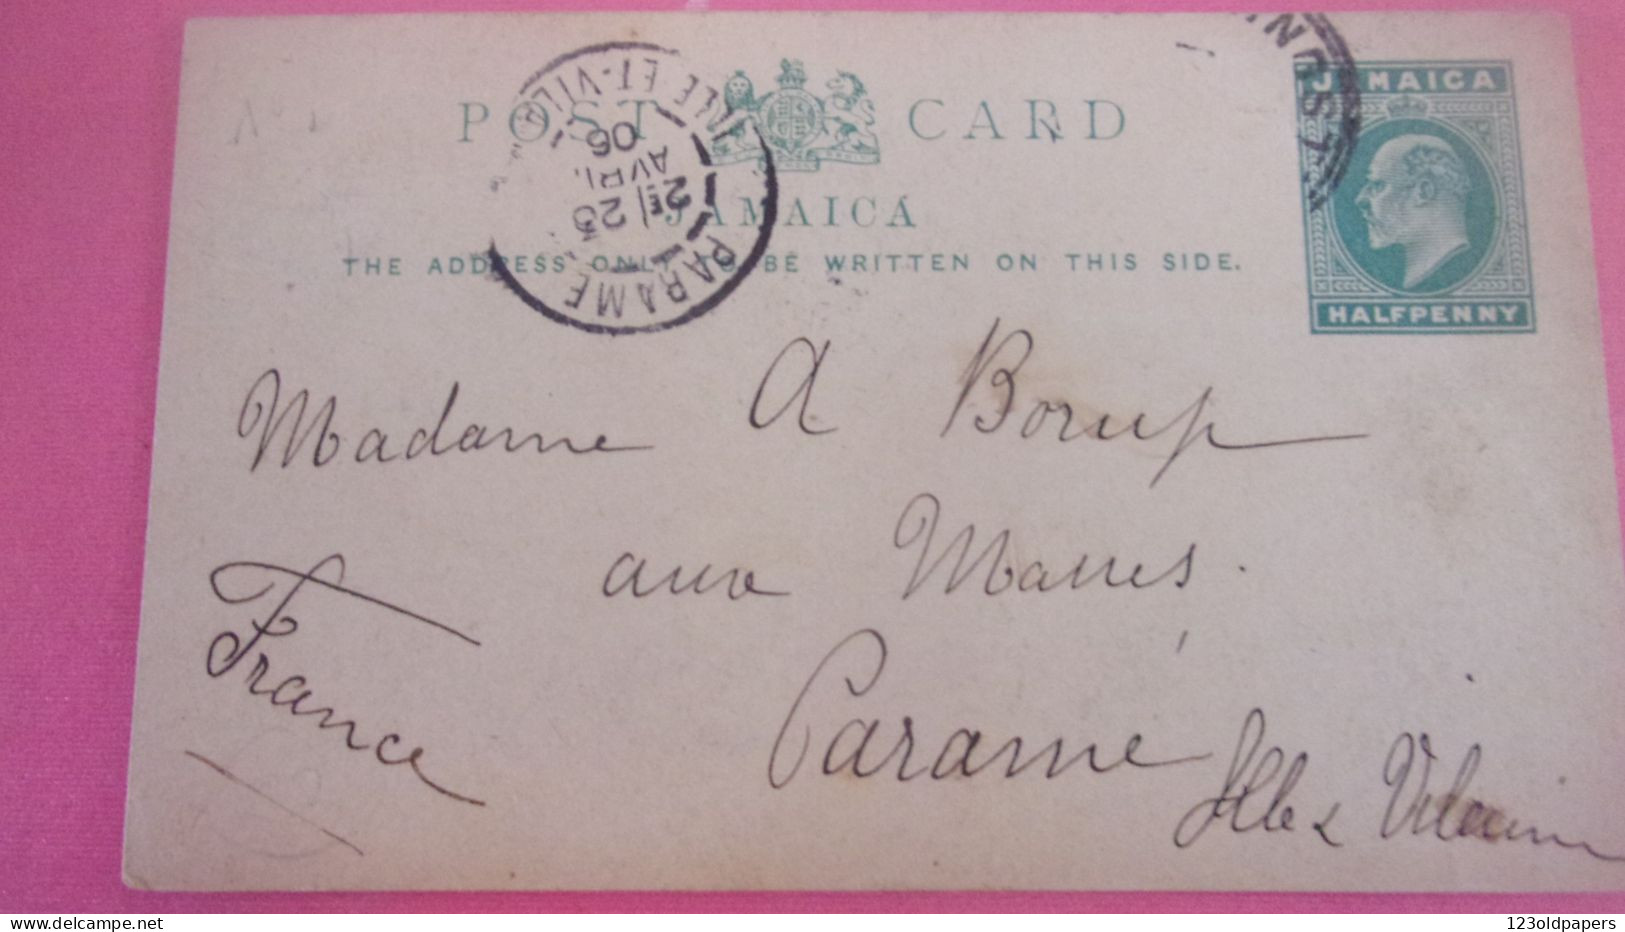 POST CARD
JAMAICA
THE ADDRESS ONLY TO BE WRITTEN ON THIS SIDE.
JAMAICA
HALFPENNY
PARAME
2E
23
AVRIL
06
Madame A Borup
aux Masses.
Paramé
Ille & Vilaine
France
123oldpapers